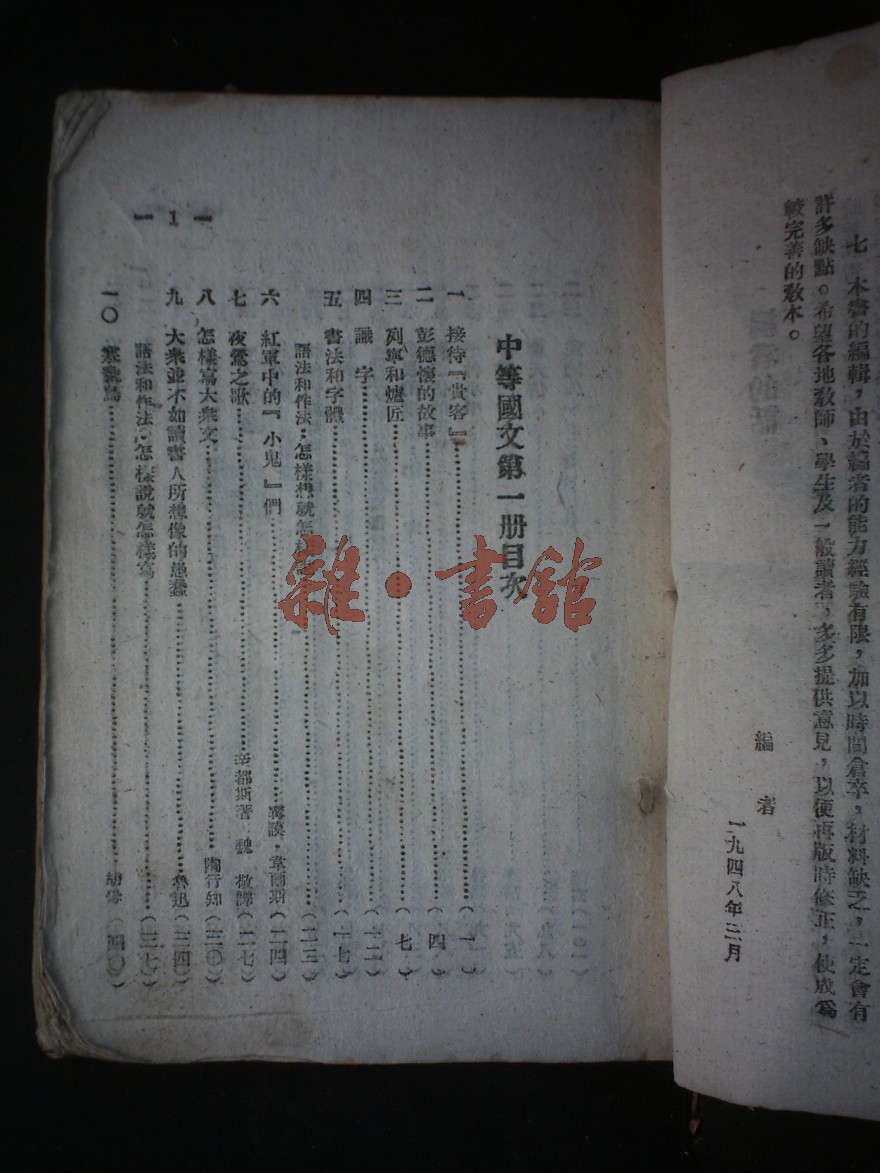 七 本書的編輯，由於編者的能力經驗有限，加以時間倉卒，材料缺乏，一定會有
許多缺點。希望各地教師、學生及一般讀者，多多提供意見，以便再版時修正，使成爲
較完善的教本。
編 者
一九四八年三月
中等國文第一册目次
一 接待『貴客』（一）
二 彭德懷的故事（四）
三 列寧和爐匠（七）
四 識字（一二）
五 書法和字體（一七）
語法和作法：怎樣想就怎樣（二三）
六 紅軍中的『小鬼』們 韋爾斯（二四）
七 夜鶯之歌 辛都斯著 魏敬譯（二七）
八 怎樣寫大衆文 陶行知（三〇）
九 大衆並不如讀書人所想像的愚蠢 魯迅（三四）
語法和作法：怎樣說就怎樣寫（三七）
一〇 寒號鳥（四〇）
— 1 —
雜·書館